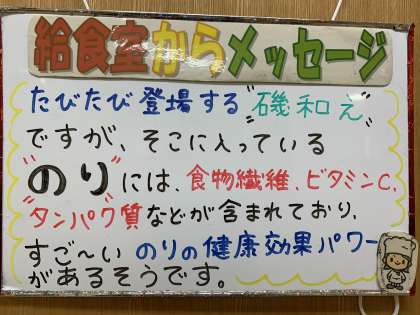 給食室からメッセージ
たびたび登場する"磯和え"
ですが、そこに入っている
"のり"には、食物繊維、ビタミンC、
タンパク質などが含まれており、
すご〜い のりの健康効果パワー
があるそうです。